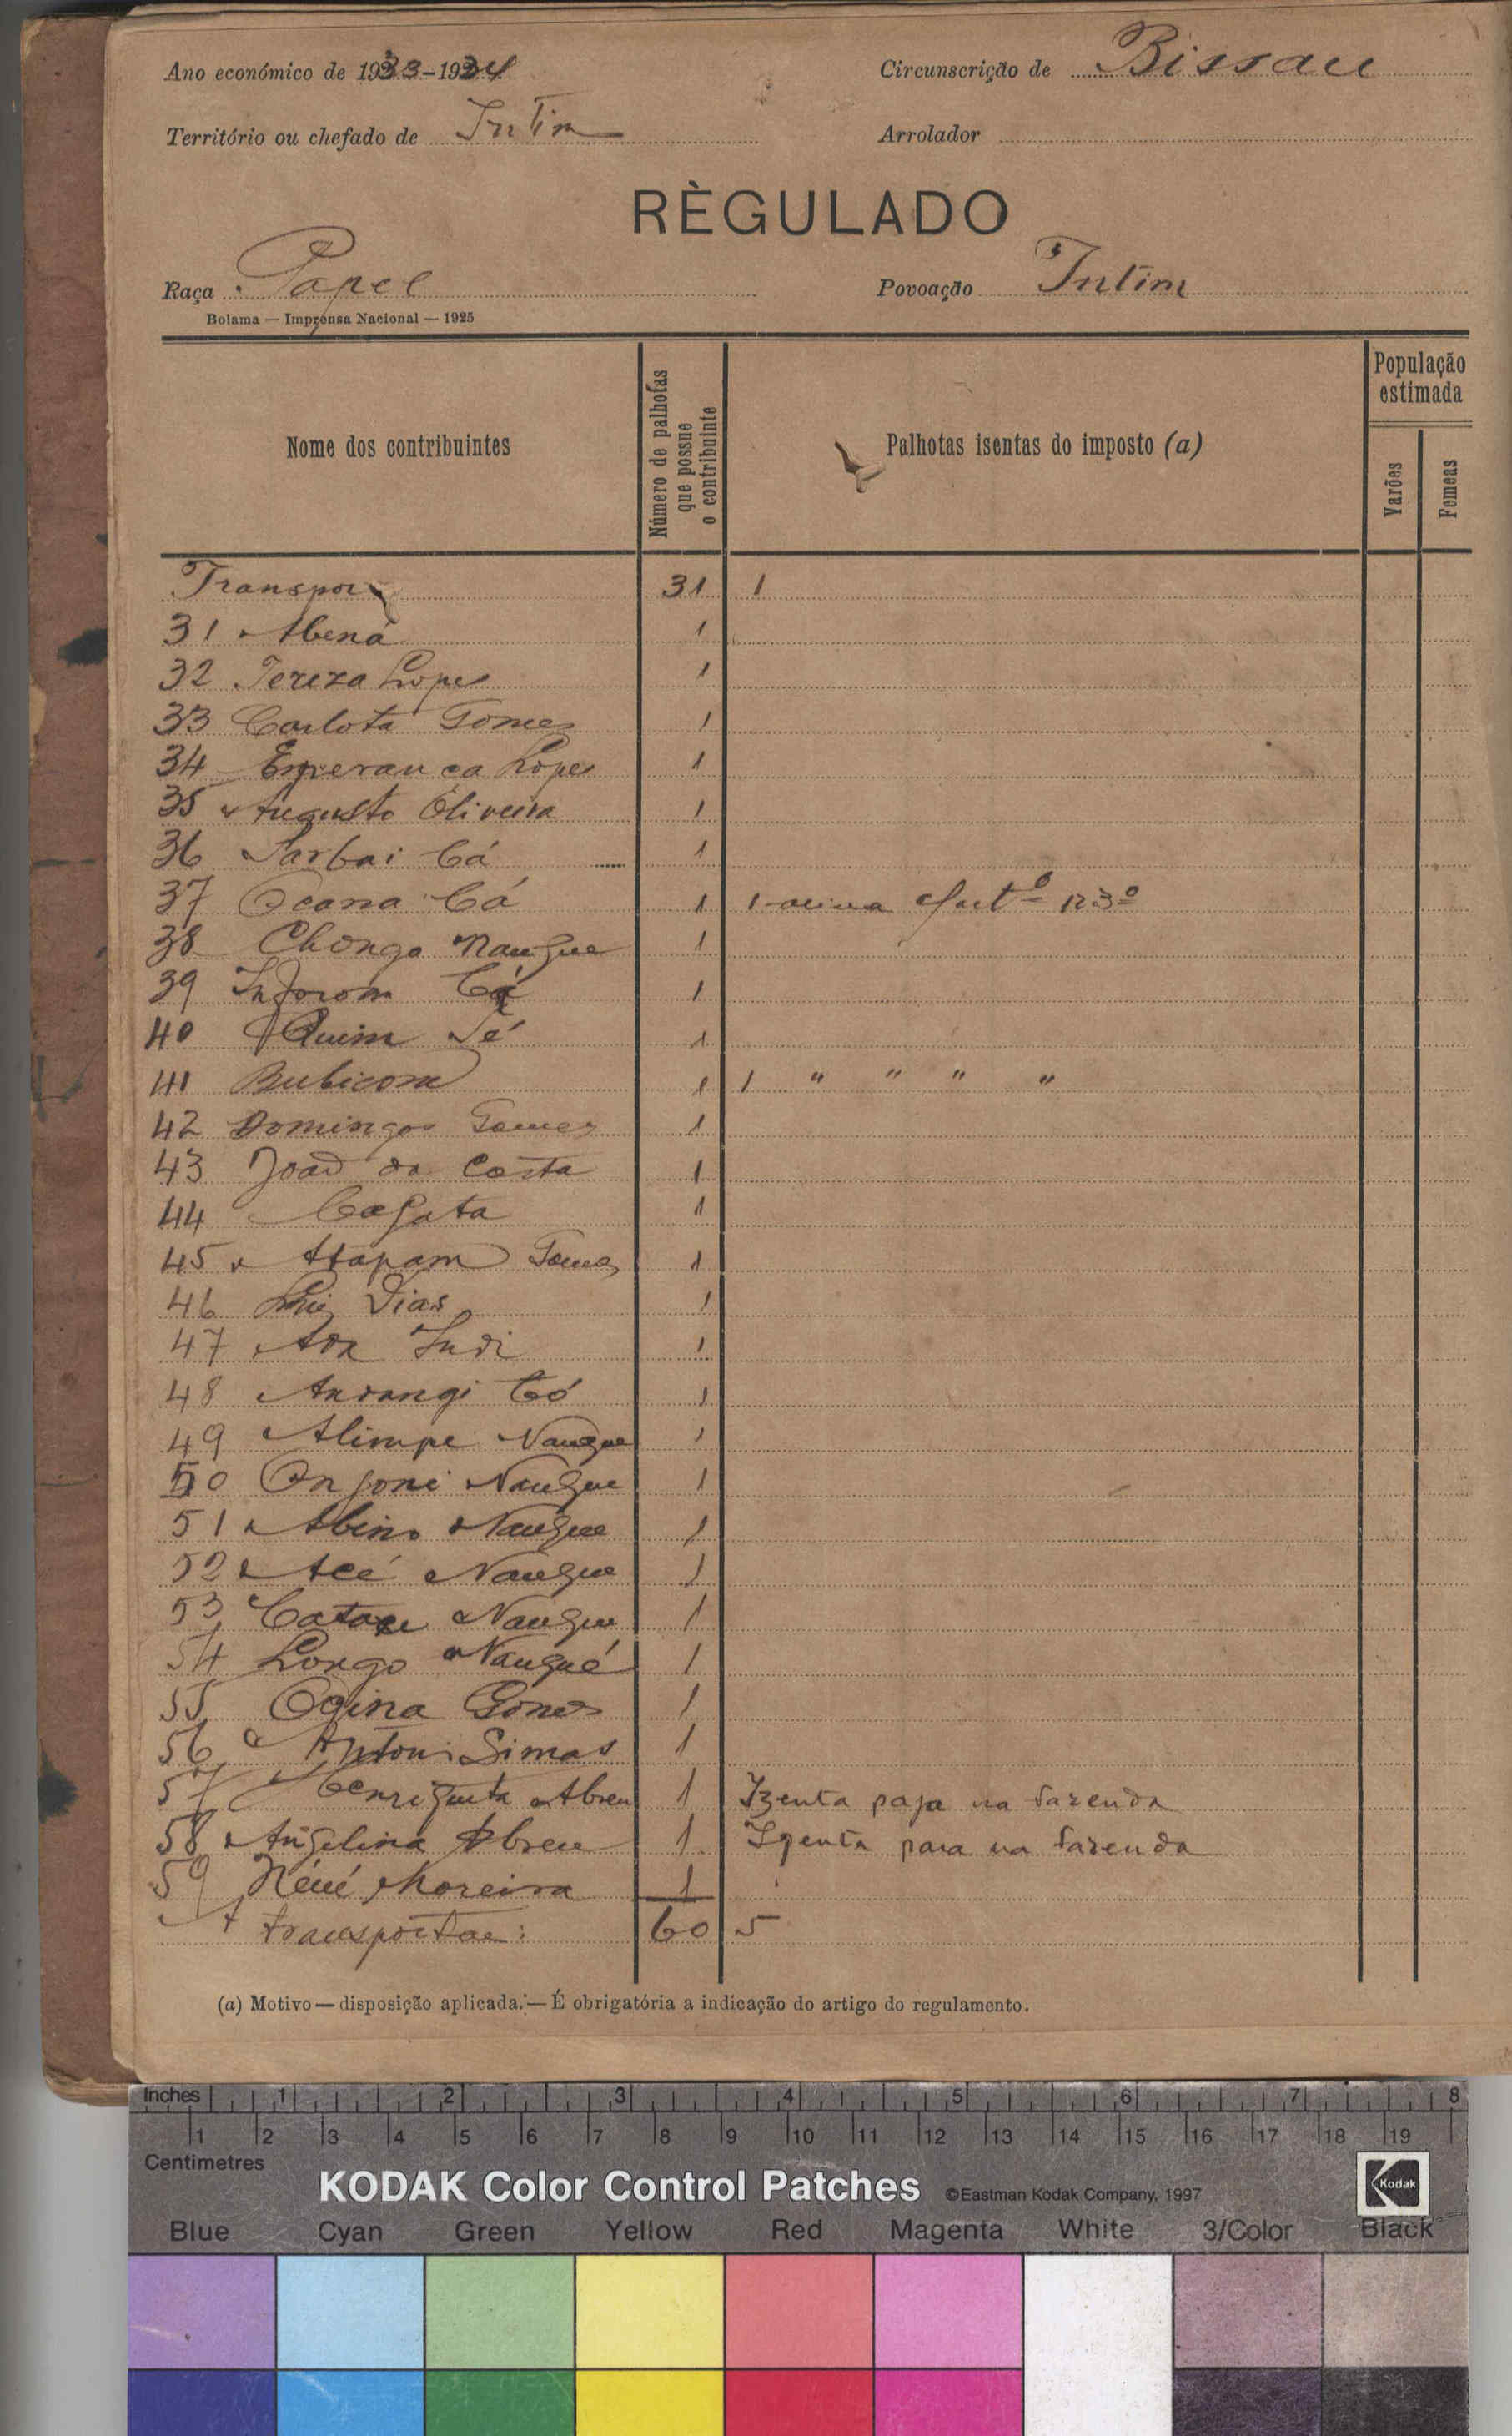 Ano económico de 1933-1934
Circunscrição de Bissau
Território ou chefado de Intim
Arrolador
RÈGULADO
Raça Papel
Povoação Intim
Bolama — Imprensa Nacional — 1925
Nome dos contribuintes
Número de palhotas que possue o contribuinte
Palhotas isentas do imposto (a)
População estimada
Varões
Femeas
Transpor 31 1
31 Abená 1
32 Tereza Lopes 1
33 Carlota Gomes 1
34 Esperança Lopes 1
35 Augusto Oliveira 1
36 Sarbai Cá 1
37 Ocana Cá 1 1
38 Chongo Nangue 1
39 Cá 1
40 Quim Sé 1
41 Bubicom 1 1 " " " "
42 Domingos Gomes 1
43 João da Costa 1
44 1
45 Atapam Gomes 1
46 Luiz Dias 1
47 Ada Indi 1
48 Andangi Có 1
49 Alimpe Nangue 1
50 Nangue 1
51 Abino Nangue 1
52 Acé Nangue 1
53 Nangue 1
54 Longo Nangué 1
55 Ogina Gomes 1
56 Antoni Simas 1
57 Henriqueta Abreu 1 Izenta paga na fazenda
58 Angelina Abreu 1 Izenta paga na fazenda
59 Nené Moreira 1
A transportar: 60 5
(a) Motivo — disposição aplicada. — É obrigatória a indicação do artigo do regulamento.
Inches 1 2 3 4 5 6 7 8
1 2 3 4 5 6 7 8 9 10 11 12 13 14 15 16 17 18 19
Centimetres
KODAK Color Control Patches ©Eastman Kodak Company, 1997 Kodak
Blue Cyan Green Yellow Red Magenta White 3/Color Black